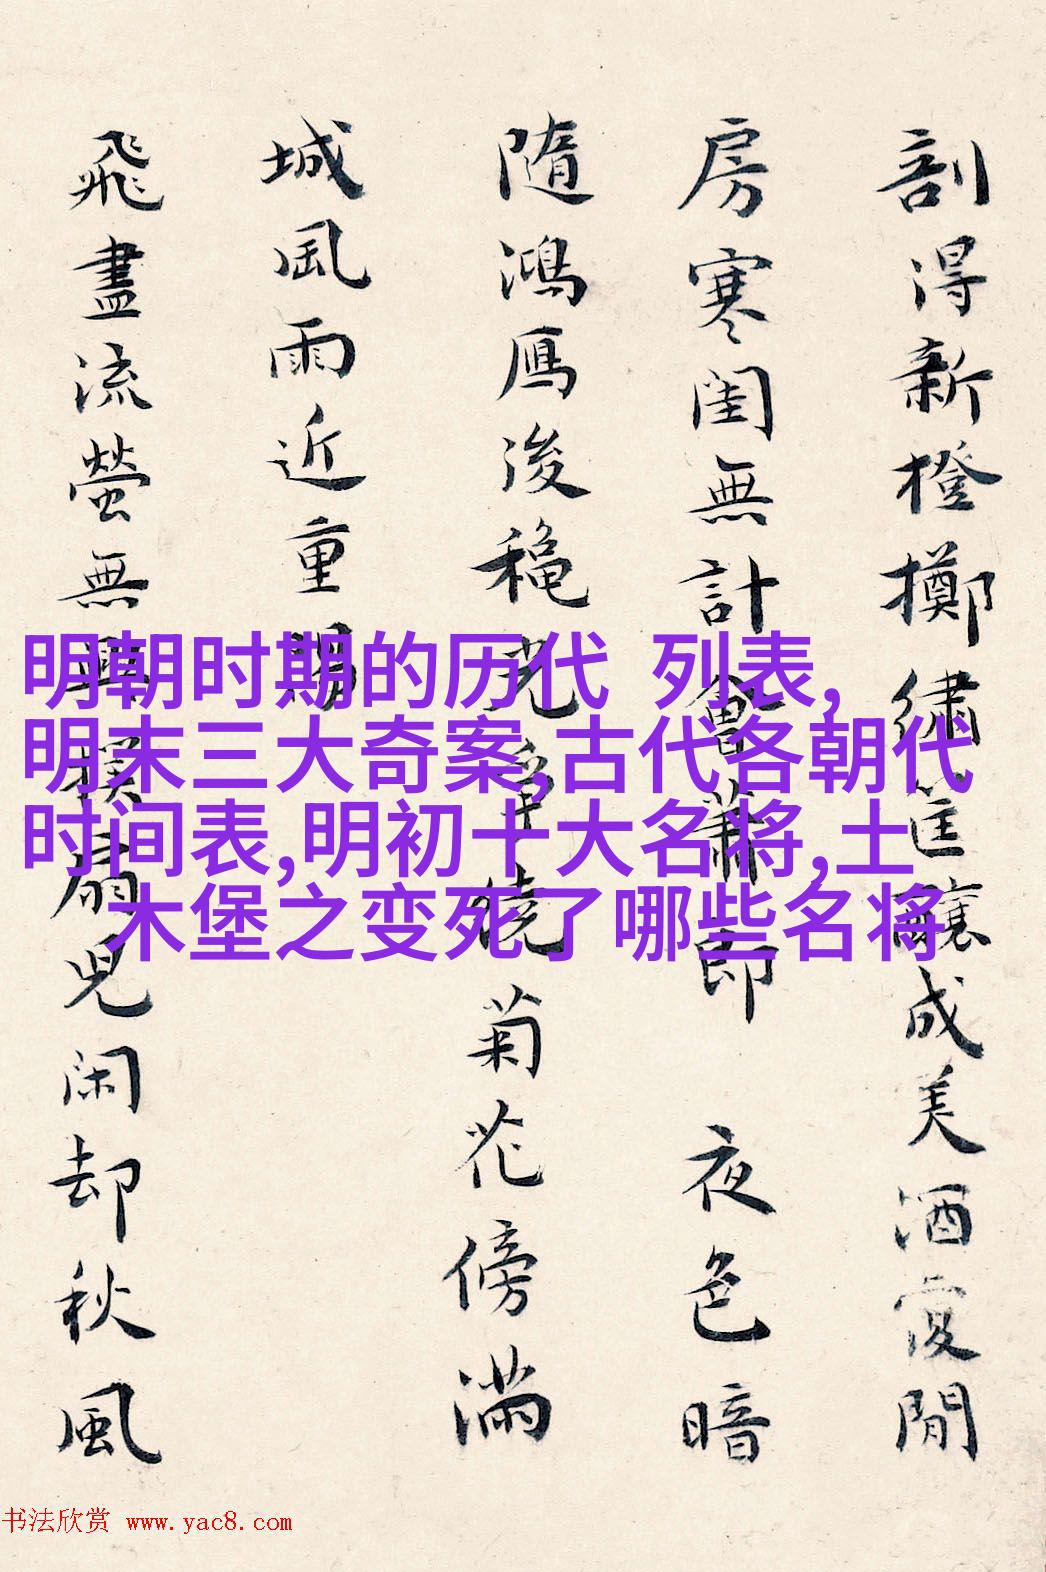 剖得新橙擲繡筐釀成美酒閒
房寒閨無計會蕭郎 夜色暗
隨鴻鴈後穐光曉菊花傍滿
城風雨近重陽
飛盡流螢無興撲扇兒閑却秋風
明朝时期的历代 列表,
明末三大奇案,古代各朝代
时间表,明初十大名将,土
木堡之变死了哪些名将
书法欣赏 www.yac8.com